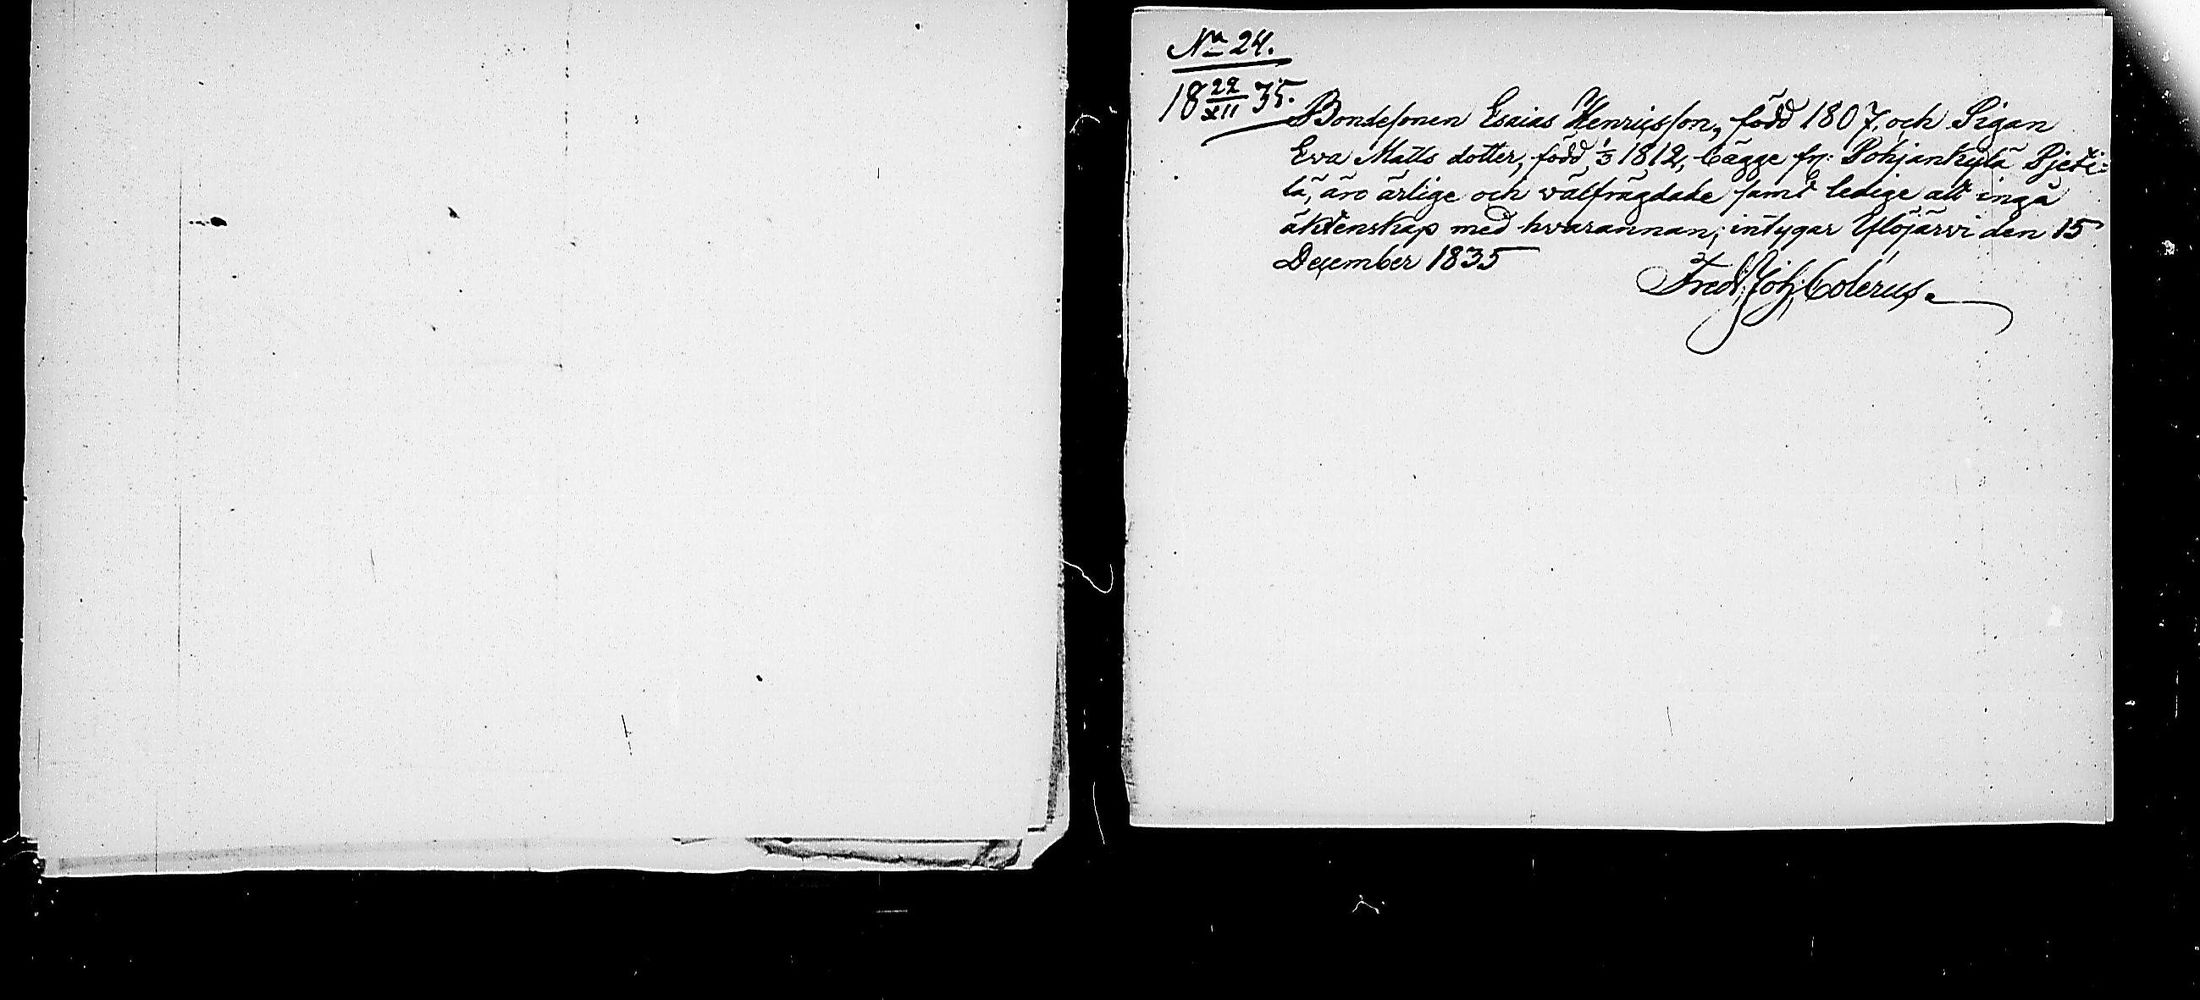 No 24.
18 22/XII 35.
Bondesonen Esaias Henricsson, född 1807, och Pigan
Eva Matts dotter, född 1/3 1812, bägge fr: Pohjankylä Pjeti-
lä, äro ärlige och välfrägdade samt ledige att ingå
äktenskap med hvarannan; intygar Ylöjärvi den 15
December 1835
Fred. Joh. Colerus.